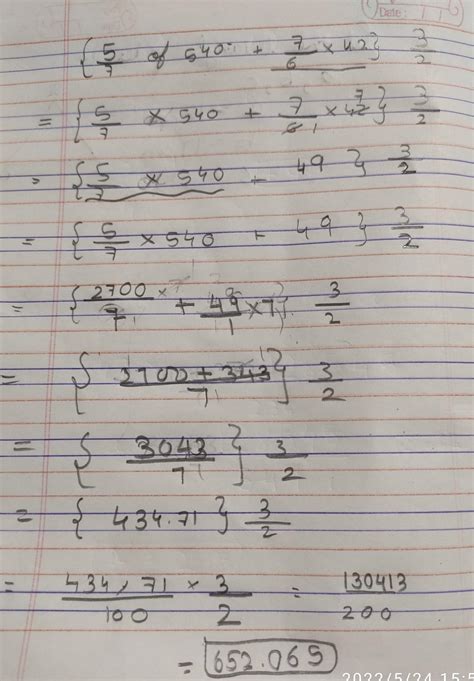 Date:
{5/7 of 540 + 7/6 × 42} 3/2
= {5/7 × 540 + 7/6 1 × 42 7} 3/2
= {5/7 × 540 + 49} 3/2
= {5/7 × 540 + 49} 3/2
= {2700/7 + 49/1 × 7} 3/2
= {2700 + 343/7} 3/2
= {3043/7} 3/2
= {434.71} 3/2
= 434,71/100 × 3/2 = 130413/200
= 652.065
2022/5/24 15:5